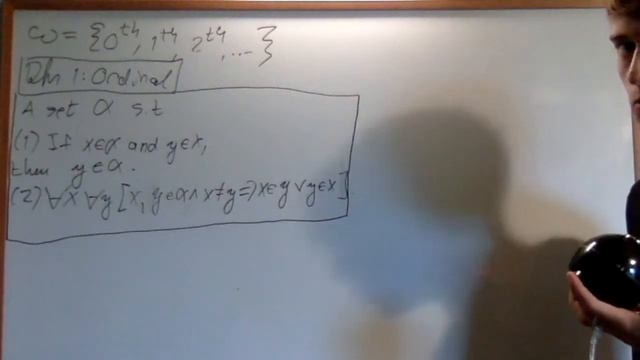 ω = {0th, 1th, 2th, ...}
Dfn 1: Ordinal
A set α s.t
(1) If x∈α and y∈x,
then y∈α.
(2) ∀x ∀y [x, y∈α ∧ x≠y ⇒ x∈y ∨ y∈x]